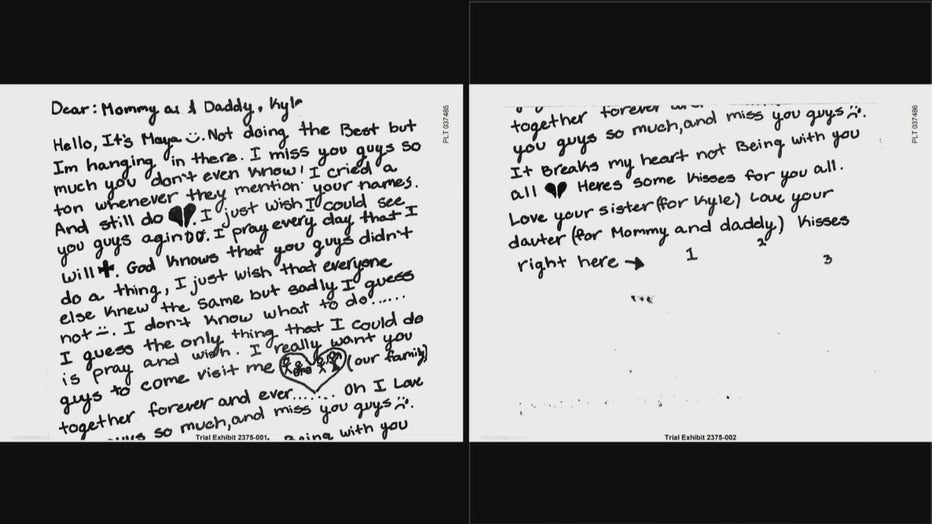 Dear: Mommy as & Daddy, Kyle
Hello, It's Maya. Not doing the Best but
Im hanging in there. I miss you guys so
much you don't even know! I cried a
ton whenever they mention your names.
And still do. I just wish I could see
you guys agin. I pray every day that I
will. God knows that you guys didn't
do a thing, I just wish that everyone
else knew the same but sadly I guess
not. I don't know what to do......
I guess the only thing that I could do
is pray and wish. I really want you
guys to come visit me (our family)
together forever and ever....... Oh I Love
guys so much, and miss you guys
Being with you
Trial Exhibit 2375-001
PLT 037485
together forever
you guys so much, and miss you guys.
It Breaks my heart not Being with you
all Heres some kisses for you all.
Love your sister (for Kyle) Love your
dauter (for Mommy and daddy) Kisses
right here → 1 2 3
Trial Exhibit 2375-002
PLT 037486